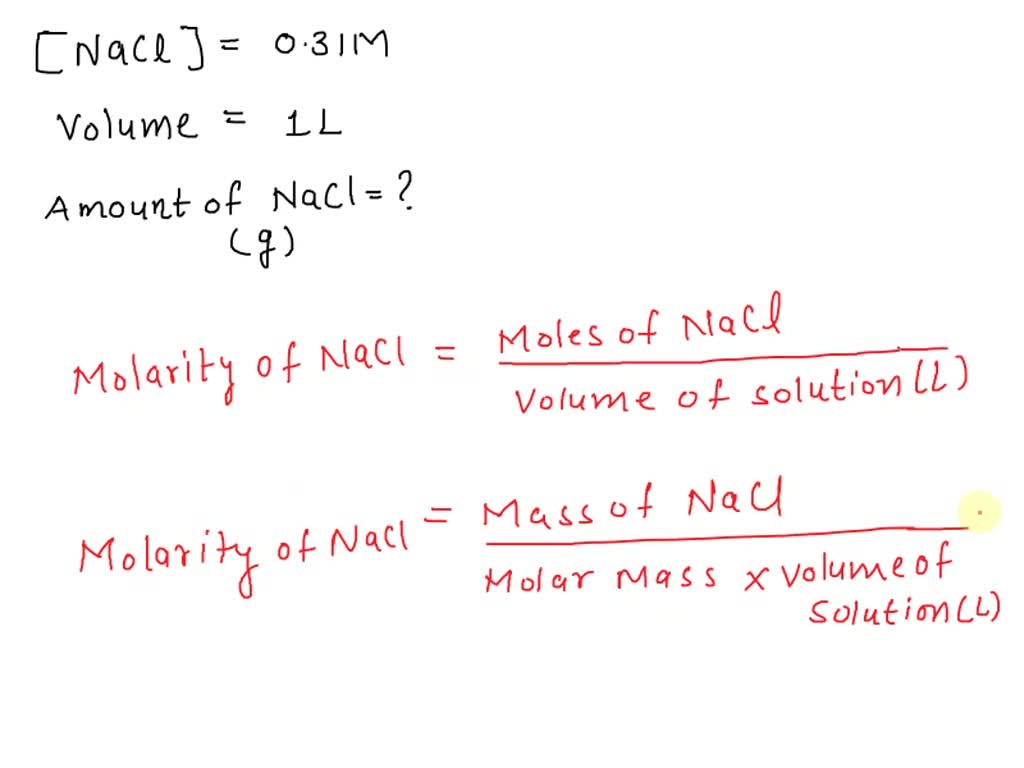 [NaCl] = 0.31M
Volume = 1L
Amount of NaCl = ?
(g)
Molarity of NaCl = Moles of NaCl
Volume of solution (L)
Molarity of NaCl = Mass of NaCl
Molar Mass x Volume of
Solution (L)